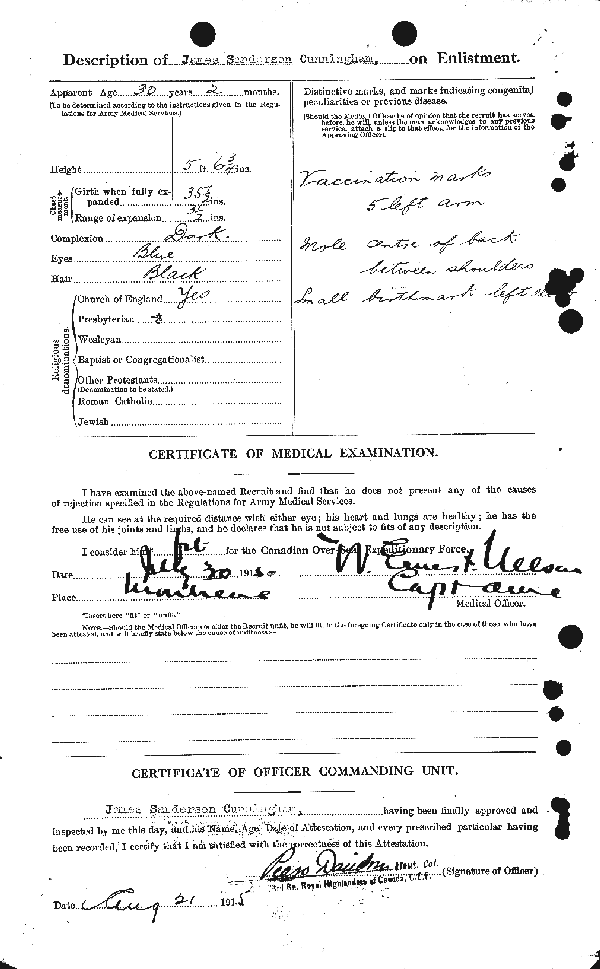 Description of James Sanderson Cunningham, on Enlistment.
Apparent Age 30 years 2 months.
(To be determined according to the instructions given in the Regulations for Army Medical Services.)
Height 5 ft. 6 3/4 ins.
Chest measurement
Girth when fully expanded 35 1/2 ins.
Range of expansion ins.
Complexion Dark.
Eyes Blue
Hair Black
Religious denominations.
Church of England Yes
Presbyterian
Wesleyan
Baptist or Congregationalist
Other Protestants
(Denomination to be stated.)
Roman Catholic
Jewish
Distinctive marks, and marks indicating congenital peculiarities or previous disease.
(Should the Medical Officer be of opinion that the recruit has served before, he will, unless the man acknowledges to any previous service, attach a slip to that effect, for the information of the Approving Officer).
Vaccination marks
5 left arm
Mole centre of back
between shoulders
Small birthmark left
CERTIFICATE OF MEDICAL EXAMINATION.
I have examined the above-named Recruit and find that he does not present any of the causes
of rejection specified in the Regulations for Army Medical Services.
He can see at the required distance with either eye; his heart and lungs are healthy; he has the
free use of his joints and limbs, and he declares that he is not subject to fits of any description.
I consider him fit for the Canadian Over-Sea Expeditionary Force.
Date July 30 191
Place
W Ernest Nelson
Capt
Medical Officer.
*Insert here "fit" or "unfit."
NOTE.—Should the Medical Officer consider the Recruit unfit, he will fill in the foregoing Certificate only in the case of those who have
been attested, and will briefly state below the cause of unfitness:—
CERTIFICATE OF OFFICER COMMANDING UNIT.
James Sanderson Cunningham, having been finally approved and
inspected by me this day, and his Name, Age, Date of Attestation, and every prescribed particular having
been recorded, I certify that I am satisfied with the correctness of this Attestation.
Lieut. Col. (Signature of Officer)
Bn. Royal Highlanders of Canada, C.E.F.
Date Aug 21 1915